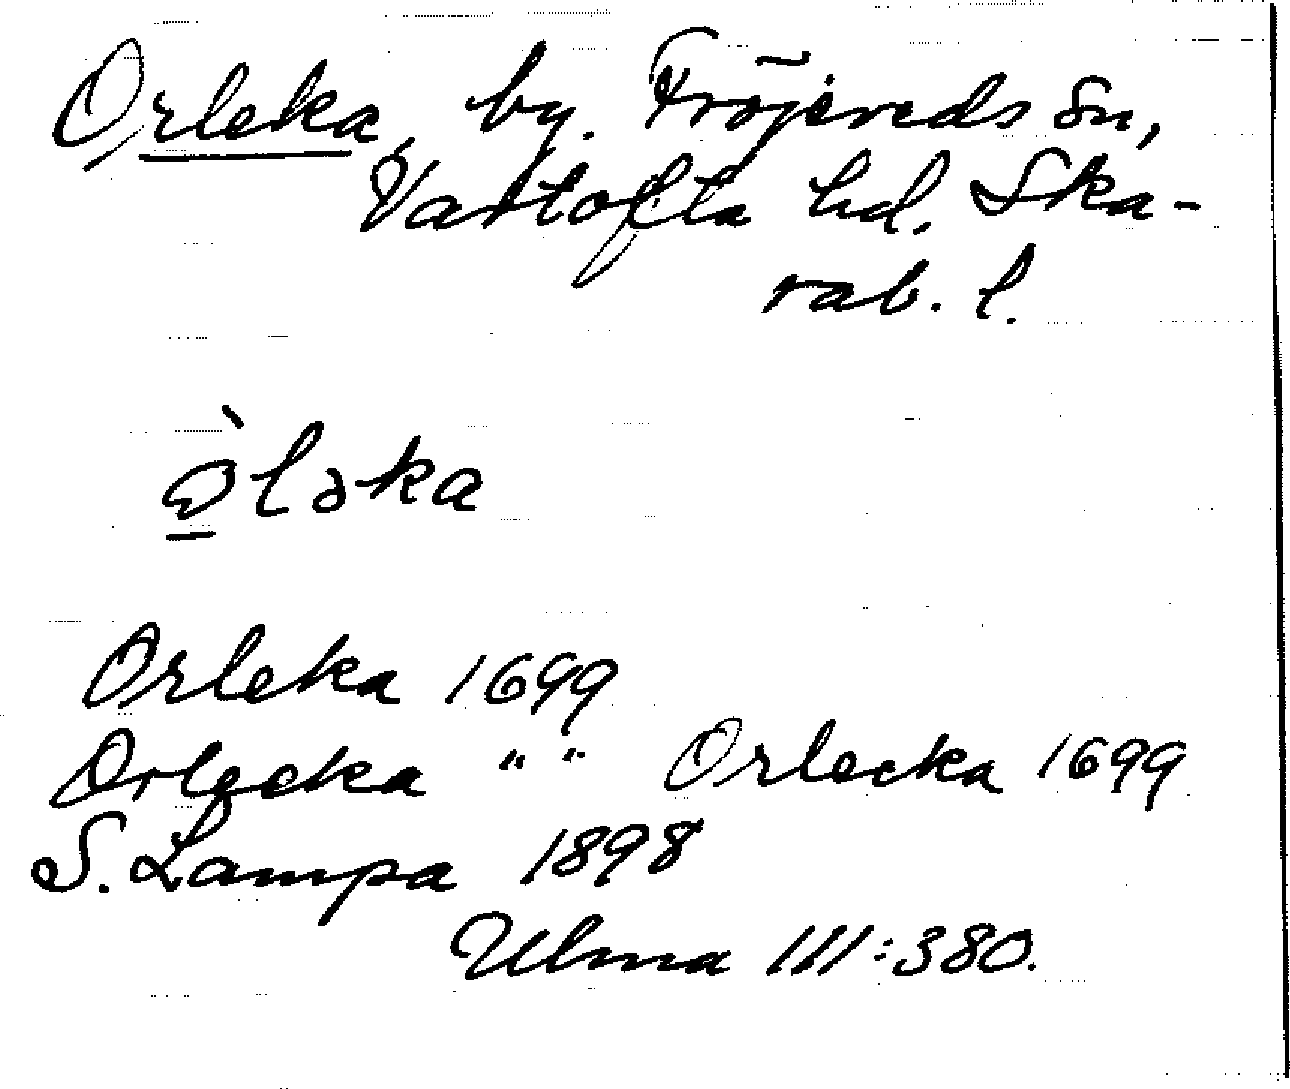 Orleka, by. Fröjereds sn,
Vartofta hd. Ska-
rab. l.
Òləka
Orleka 1699
Orlecka " " Orlecka 1699
S. Lampa 1898
Ulma III:380.